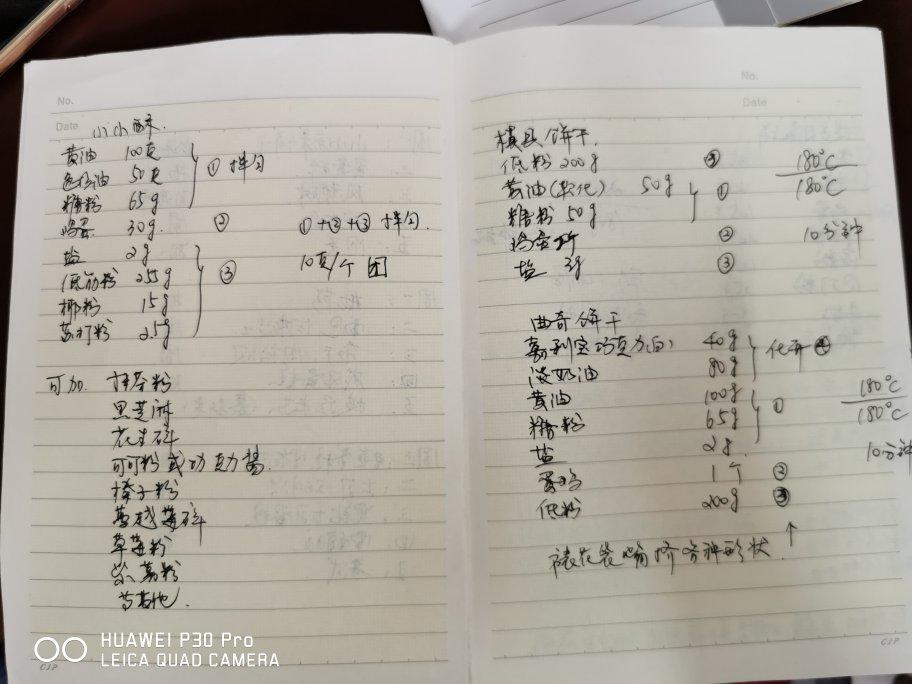 No.
Date 小小酥.
黄油 100克 ① 拌匀
色拉油 50克
糖粉 65g
鸡蛋 30g. ② ①+②+③ 拌匀.
盐 2g ③ 10克/个 团
低筋粉 255g
椰粉 15g
苏打粉 2.5g
可加. 抹茶粉
黑芝麻
花生碎
可可粉或巧克力酱.
榛子粉
蔓越莓碎
草莓粉
紫薯粉
等其他.
HUAWEI P30 Pro
LEICA QUAD CAMERA
No.
Date
模具饼干
低粉 200g 180℃
黄油(软化) 50g ① 180℃
糖粉 50g
② 10分钟
盐 3g ③
曲奇饼干
嘉利宝巧克力(白) 40g 化开④
淡奶油 80g
黄油 100g ① 180℃
糖粉 65g 180℃
盐 2g. 10分钟
1个 ②
低粉 200g ③
裱花袋 挤各种形状. ↑